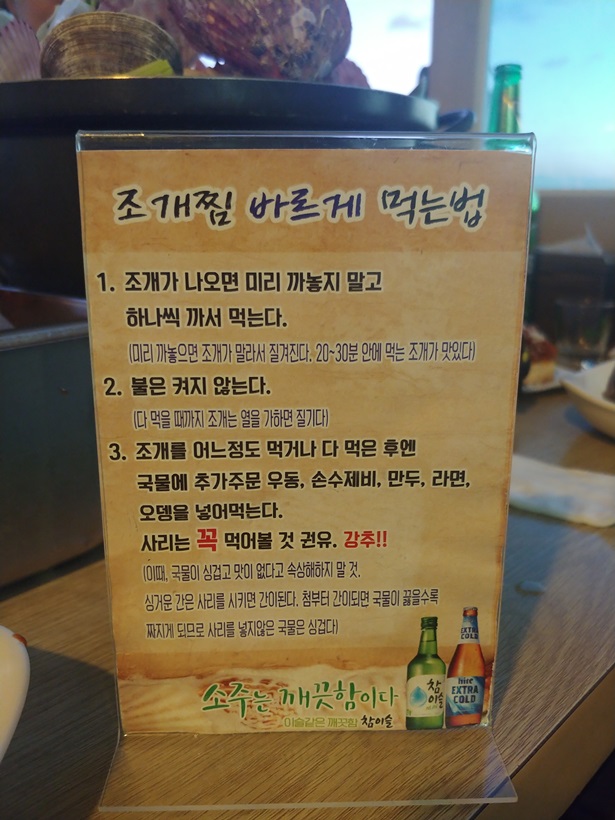 조개찜 바르게 먹는법
1. 조개가 나오면 미리 까놓지 말고
하나씩 까서 먹는다.
(미리 까놓으면 조개가 말라서 질겨진다. 20~30분 안에 먹는 조개가 맛있다)
2. 불은 켜지 않는다.
(다 먹을 때까지 조개는 열을 가하면 질기다)
3. 조개를 어느정도 먹거나 다 먹은 후엔
국물에 추가주문 우동, 손수제비, 만두, 라면,
오뎅을 넣어먹는다.
사리는 꼭 먹어볼 것 권유. 강추!!
(이때, 국물이 싱겁고 맛이 없다고 속상해하지 말 것.
싱거운 간은 사리를 시키면 간이된다. 첨부터 간이되면 국물이 끓을수록
짜지게 되므로 사리를 넣지않은 국물은 싱겁다)
소주는 깨끗함이다
이슬같은 깨끗함 참이슬
참이슬
EXTRA COLD
hite
EXTRA
COLD